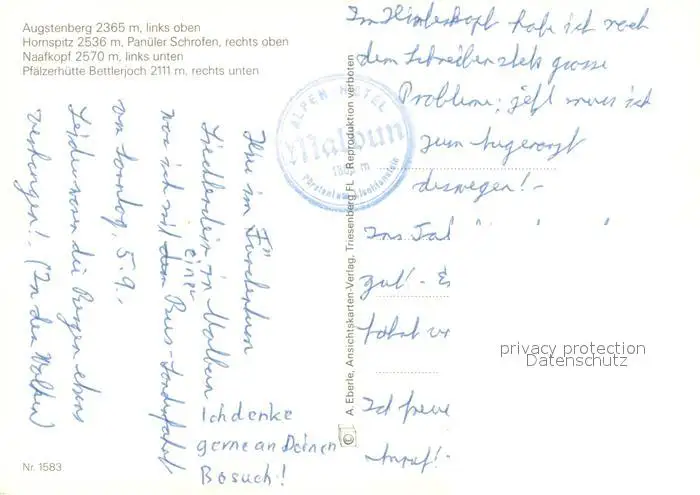 Augstenberg 2365 m, links oben
Hornspitz 2536 m, Panüler Schrofen, rechts oben
Naafkopf 2570 m, links unten
Pfälzerhütte Bettlerjoch 2111 m, rechts unten
ALPEN HOTEL
Malbun
1600 m
Fürstentum Liechtenstein
Hier im Fürstentum
Liechtenstein in Malbun
war ich mit einer Bus-Sonderfahrt
am Sonntag, 5.9..
Leider waren die Bergen ebens
verhangen! (In den Wolken)
Ich denke
gerne an Deinen
Besuch!
Nr. 1583
A. Eberle, Ansichtskarten-Verlag, Triesenberg FL - Reproduktion verboten
Im Hinterkopf habe ich nach
dem Schreiben stets grosse
Probleme; jetzt muss ich
zum Augenarzt
deswegen! -
Ins Tal
gut! -
fahrt
Ich freue
Anruf! -
privacy protection
Datenschutz